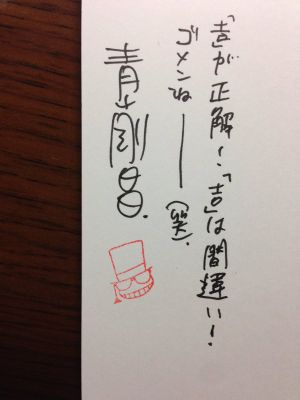 「𠮷」が正解!「吉」は間違い!
ゴメンねー(笑).
青山剛昌.